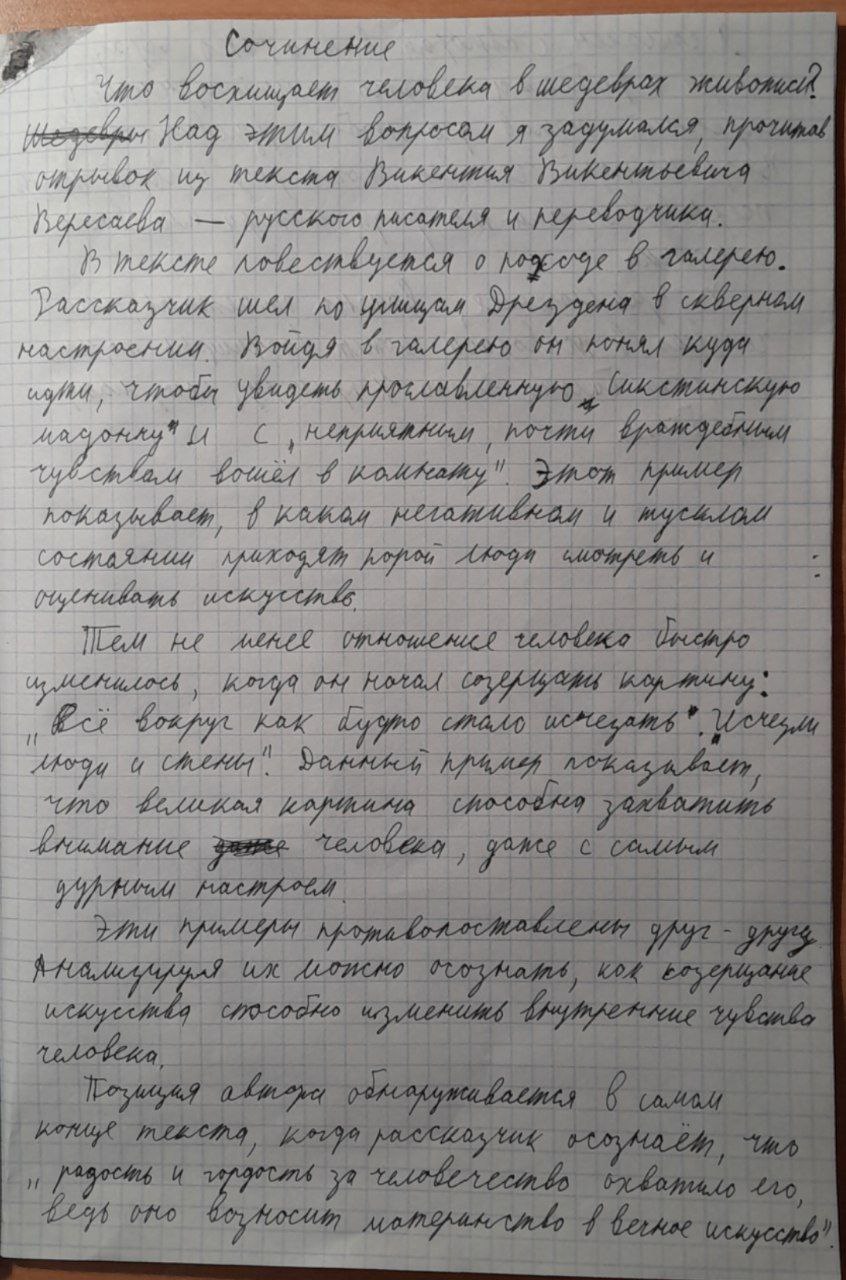 Сочинение
Что восхищает человека в шедеврах живописи?
Шедевры Над этим вопросом я задумался, прочитав
отрывок из текста Викентия Викентьевича
Вересаева — русского писателя и переводчика.
В тексте повествуется о походе в галерею.
Рассказчик шел по улицам Дрездена в скверном
настроении. Войдя в галерею он понял куда
идти, чтобы увидеть прославленную „Сикстинскую
мадонну" и с „неприятным, почти враждебным
чувством вошёл в комнату". Этот пример
показывает, в каком негативном и тусклом
состоянии приходят порой люди смотреть и
оценивать искусство.
Тем не менее отношение человека быстро
изменилось, когда он начал созерцать картину:
„Всё вокруг как будто стало исчезать". „Исчезли
люди и стены". Данный пример показывает,
что великая картина способна захватить
внимание даже человека, даже с самым
дурным настроем.
Эти примеры противопоставлены друг-другу.
Анализируя их можно осознать, как созерцание
искусства способно изменить внутренние чувства
человека.
Позиция автора обнаруживается в самом
конце текста, когда рассказчик осознаёт, что
„радость и гордость за человечество охватило его,
ведь оно возносит материнство в вечное искусство".